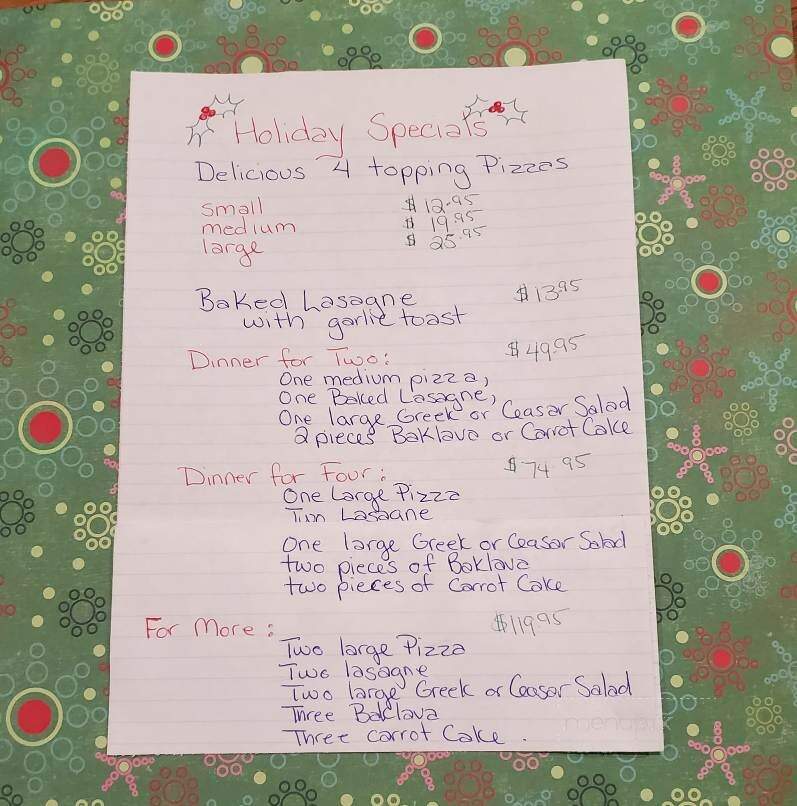 Holiday Specials
Delicious 4 topping Pizzas
small $ 12.95
medium $ 19.95
large $ 25.95
Baked Lasagne $ 13.95
with garlic toast
Dinner for Two: $ 49.95
One medium pizza,
One Baked Lasagne,
One large Greek or Ceasar Salad
2 pieces Baklava or Carrot Cake
Dinner for Four: $ 74 95
One Large Pizza
Two Lasagne
One large Greek or Ceasar Salad
two pieces of Baklava
two pieces of Carrot Cake
For More: $ 119 95
Two large Pizza
Two lasagne
Two large Greek or Ceasar Salad
Three Baclava
Three carrot Cake.